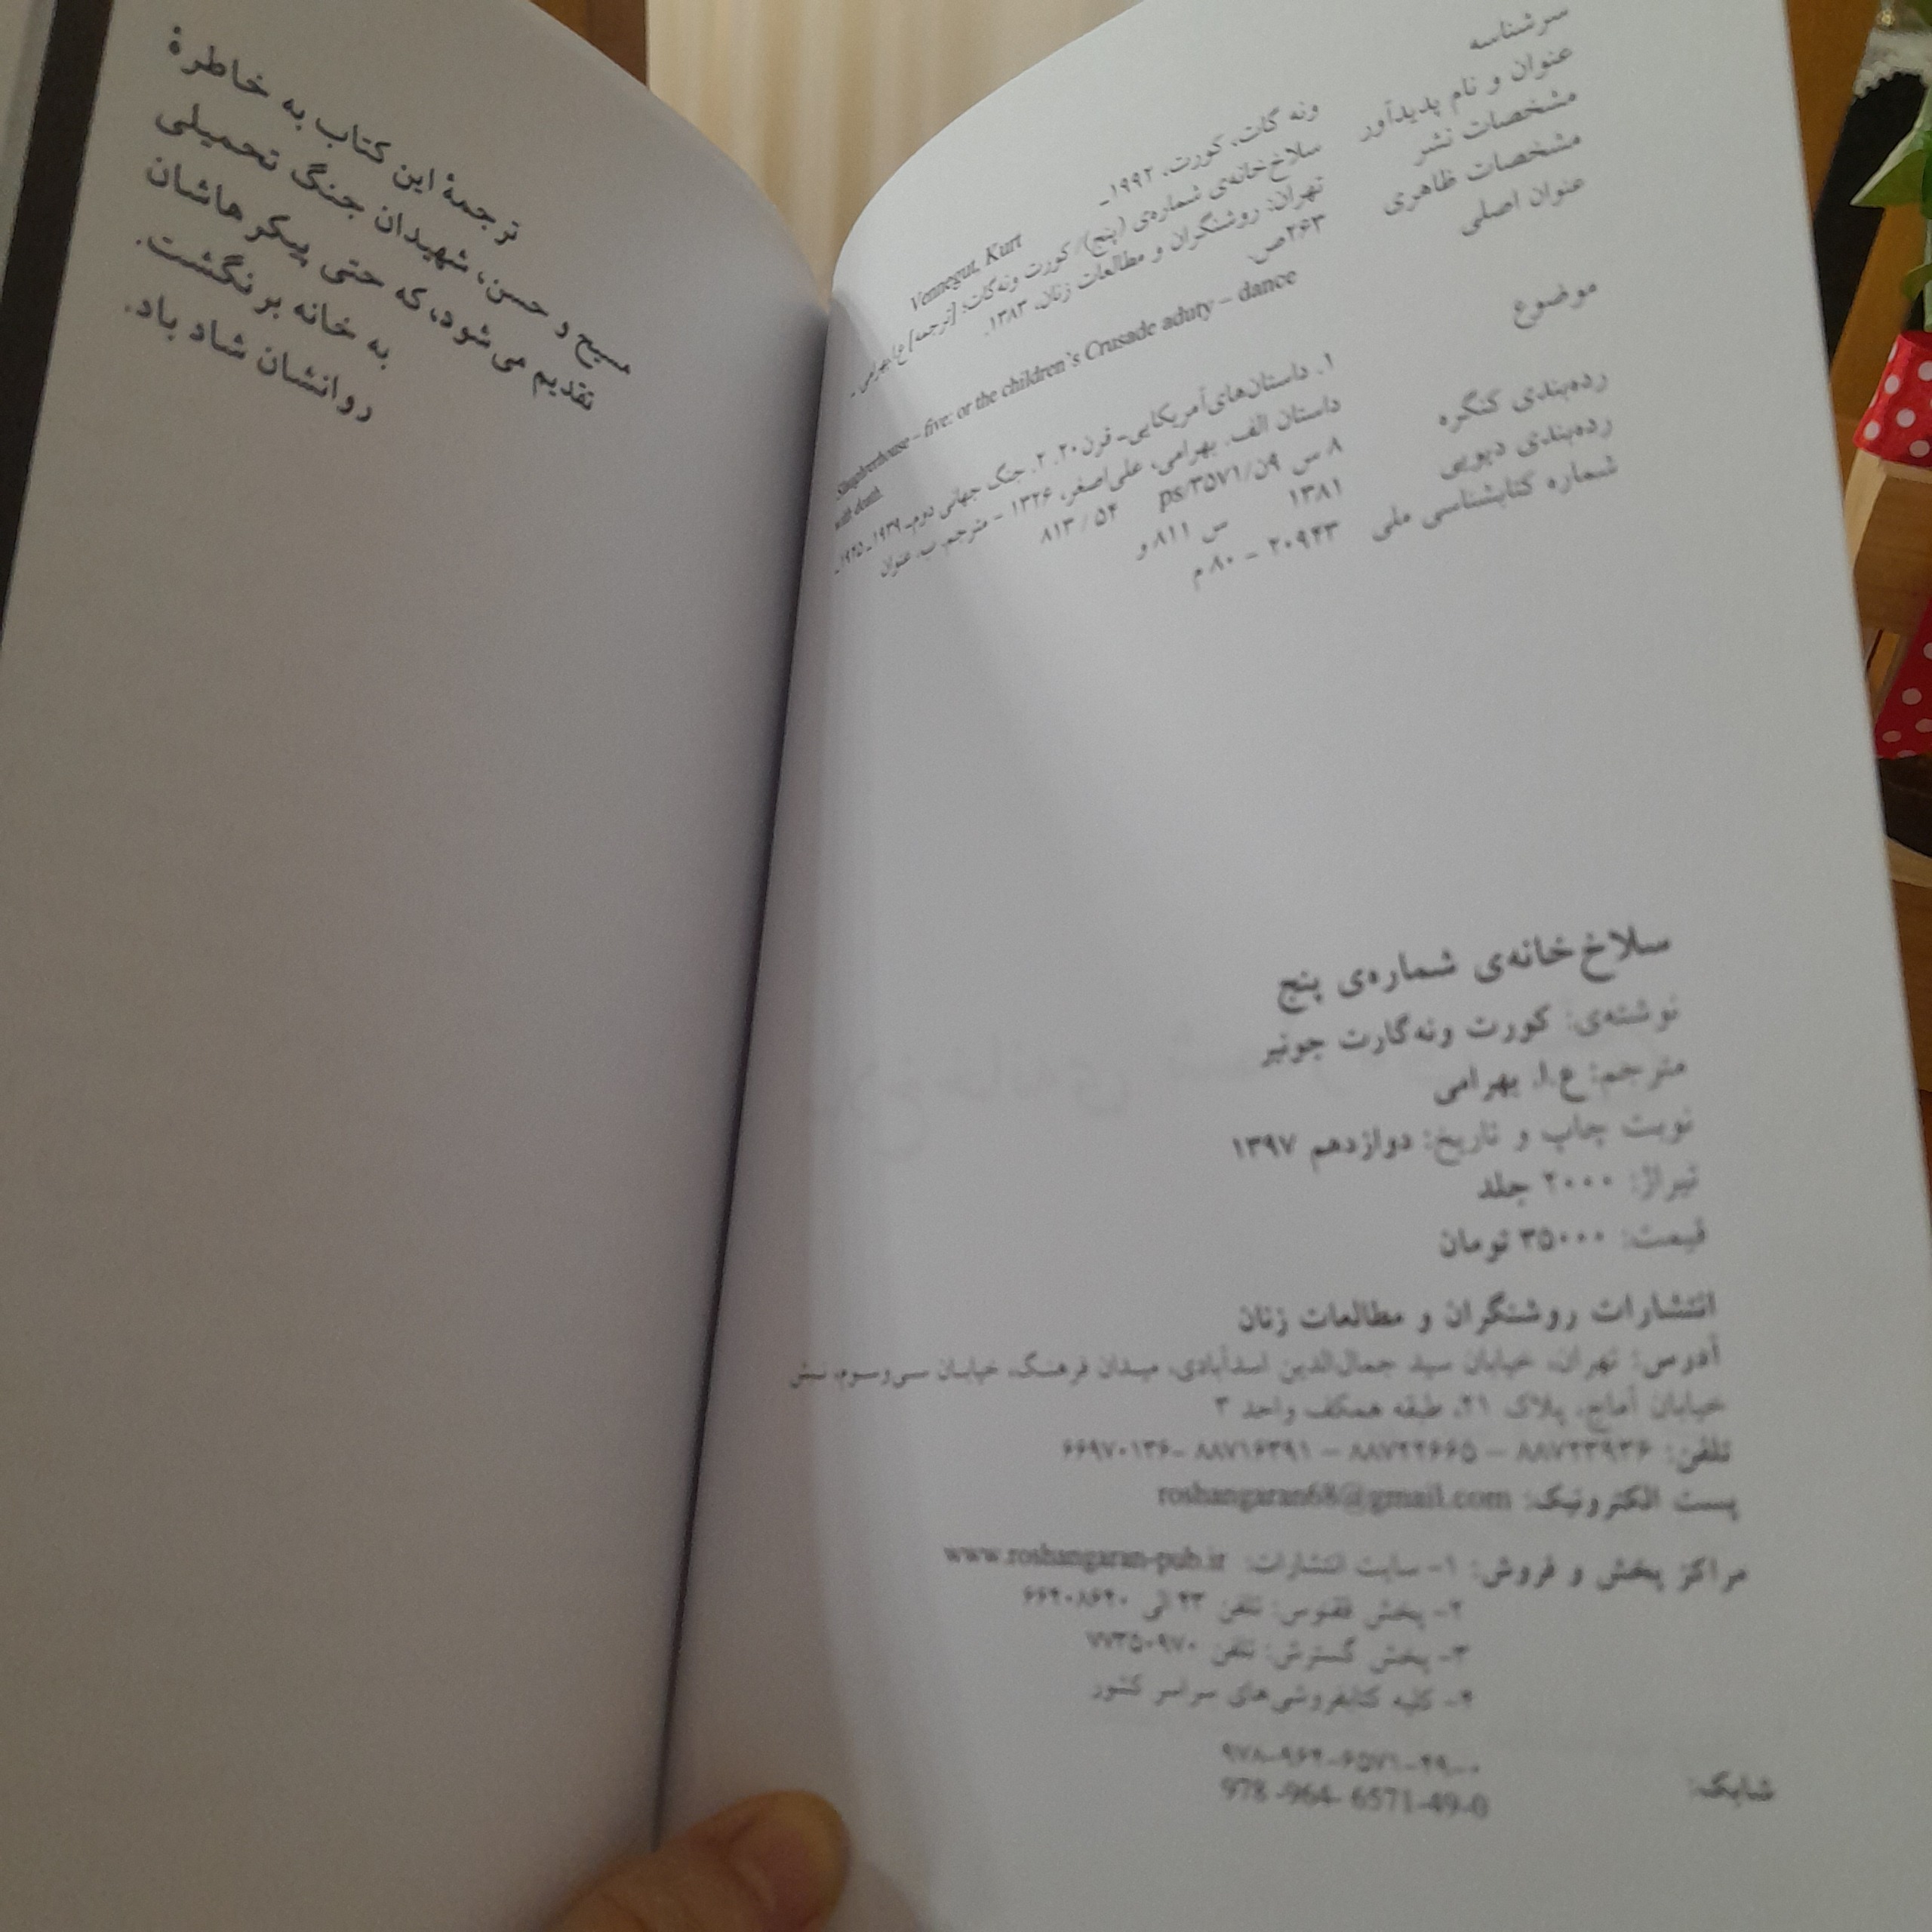 سرشناسه
ونه گات، کورت، ۱۹۹۲ـ
Vennegut, Kurt
عنوان و نام پدیدآور
سلاخ‌خانه‌ی شماره‌ی (پنج)/ کورت ونه‌گات؛ [ترجمه] ع.ا.بهرامی. ـ
مشخصات نشر
تهران: روشنگران و مطالعات زنان، ۱۳۸۳.
مشخصات ظاهری
۲۶۳ص.
عنوان اصلی
five: or the children's Crusade aduty – dance
with death
موضوع
۱. داستان‌های آمریکایی‌ـ قرن ۲۰. ۲. جنگ جهانی دوم‌ـ ۱۹۳۹ـ ۱۹۴۵ـ
داستان الف. بهرامی، علی‌اصغر، ۱۳۲۶ – مترجم. ب. عنوان
رده‌بندی کنگره
۸ س ۹ن/ps/۳۵۷۱
رده‌بندی دیویی
۱۳۸۱ س ۸۱۱ و ۸۱۳/۵۴
شماره کتابشناسی ملی
۲۰۹۴۳ – ۸۰ م
سلاخ‌خانه‌ی شماره‌ی پنج
نوشته‌ی: کورت ونه‌گارت جونیر
مترجم: ع.ا. بهرامی
نوبت چاپ و تاریخ: دوازدهم ۱۳۹۷
تیراژ: ۲۰۰۰ جلد
قیمت: ۳۵۰۰۰ تومان
انتشارات روشنگران و مطالعات زنان
آدرس: تهران، خیابان سید جمال‌الدین اسدآبادی، میدان فرهنگ، خیابان سی‌وسوم، نبش
خیابان آماج، پلاک ۲۱، طبقه همکف واحد ۳
تلفن: ۸۸۷۲۳۹۳۶ – ۸۸۷۲۲۶۶۵ – ۸۸۷۱۶۳۹۱ -۶۶۹۷۰۱۳۶
پست الکترونیک: roshangaran68@gmail.com
مراکز پخش و فروش: ۱- سایت انتشارات: www.roshangaran-pub.ir
۲- پخش ققنوس: تلفن ۴۳ الی ۶۶۴۰۸۶۴۰
۳- پخش گسترش: تلفن ۷۷۳۵۰۹۷۰
۴- کلیه کتابفروشی‌های سراسر کشور
شابک:
۹۷۸-۹۶۴-۶۵۷۱-۴۹-۰
978 -964- 6571-49-0
ترجمهٔ این کتاب به خاطرهٔ
مسیح و حسن، شهیدان جنگ تحمیلی
تقدیم می‌شود، که حتی پیکرهاشان
به خانه برنگشت.
روانشان شاد باد.